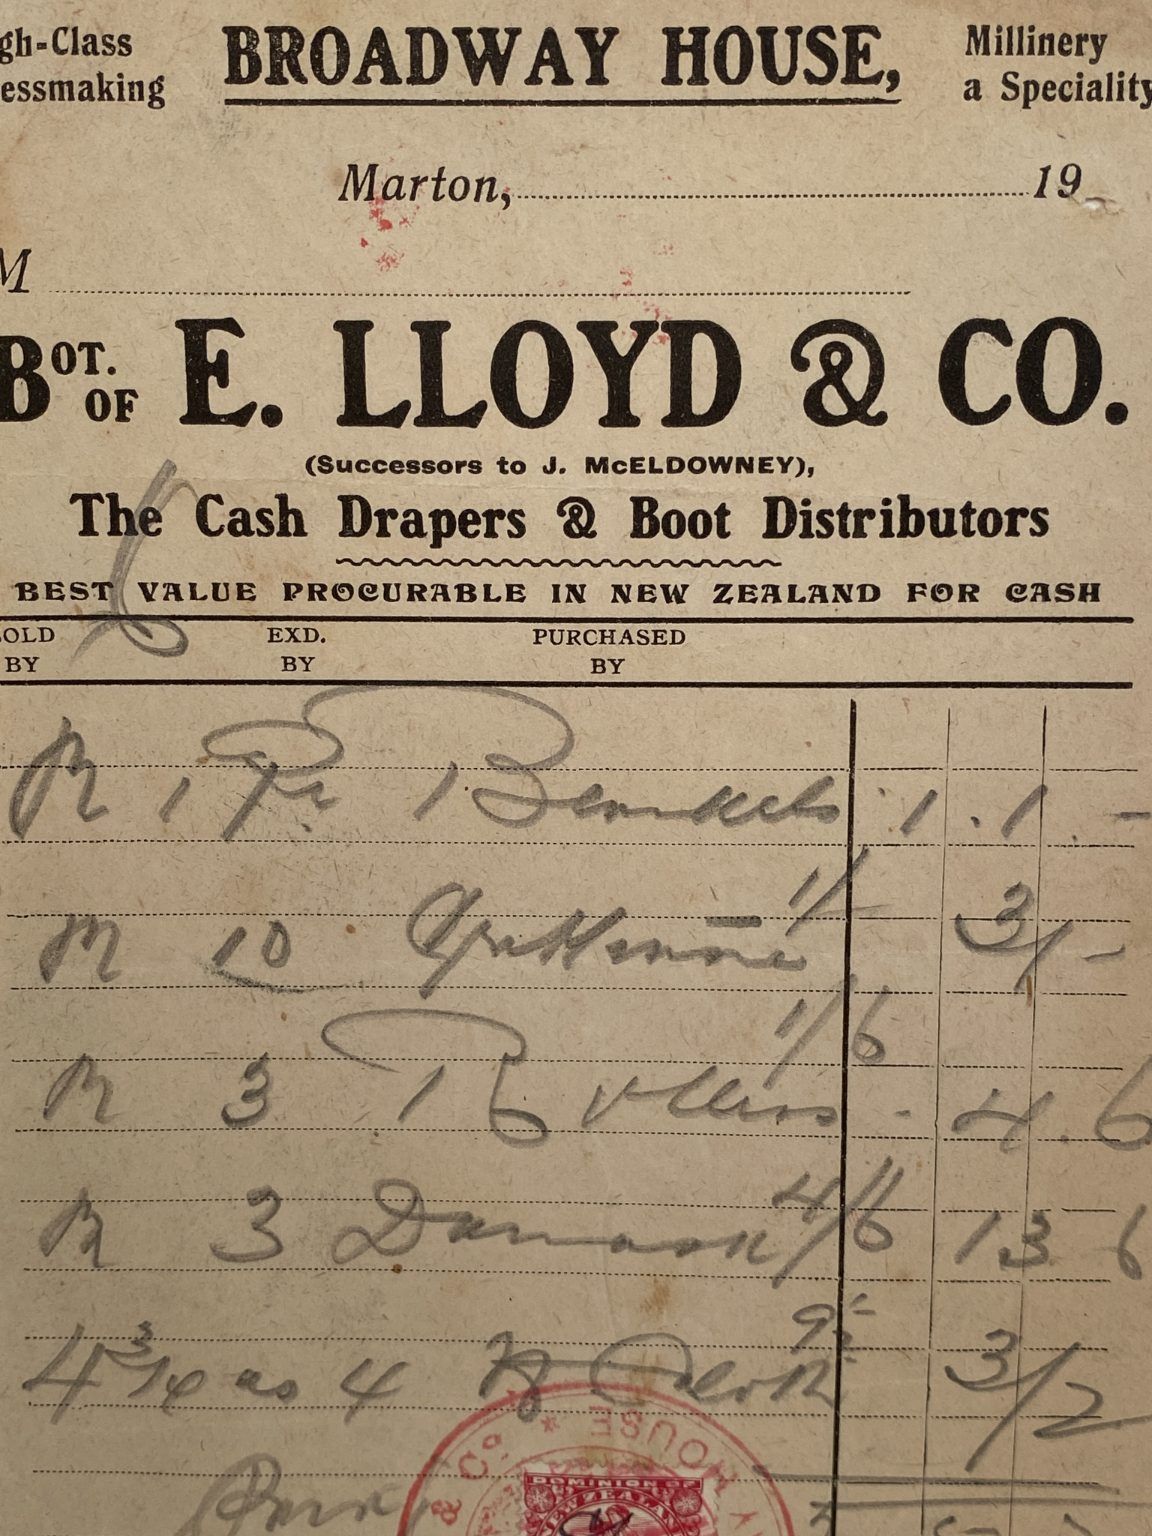 gh-Class BROADWAY HOUSE, Millinery
essmaking a Speciality
Marton, 19
M
BOT. OF E. LLOYD & CO.
(Successors to J. McELDOWNEY),
The Cash Drapers & Boot Distributors
BEST VALUE PROCURABLE IN NEW ZEALAND FOR CASH
SOLD BY EXD. BY PURCHASED BY
1 Pr Blankets 1 . 1 . -
1/-
10 3/-
1/6
3 4 . 6
4/6
3 Damask 13 6
4 3/4 as 4 Cloth 3/2
& Co * HOUSE
DOMINION OF
NEW ZEALAND